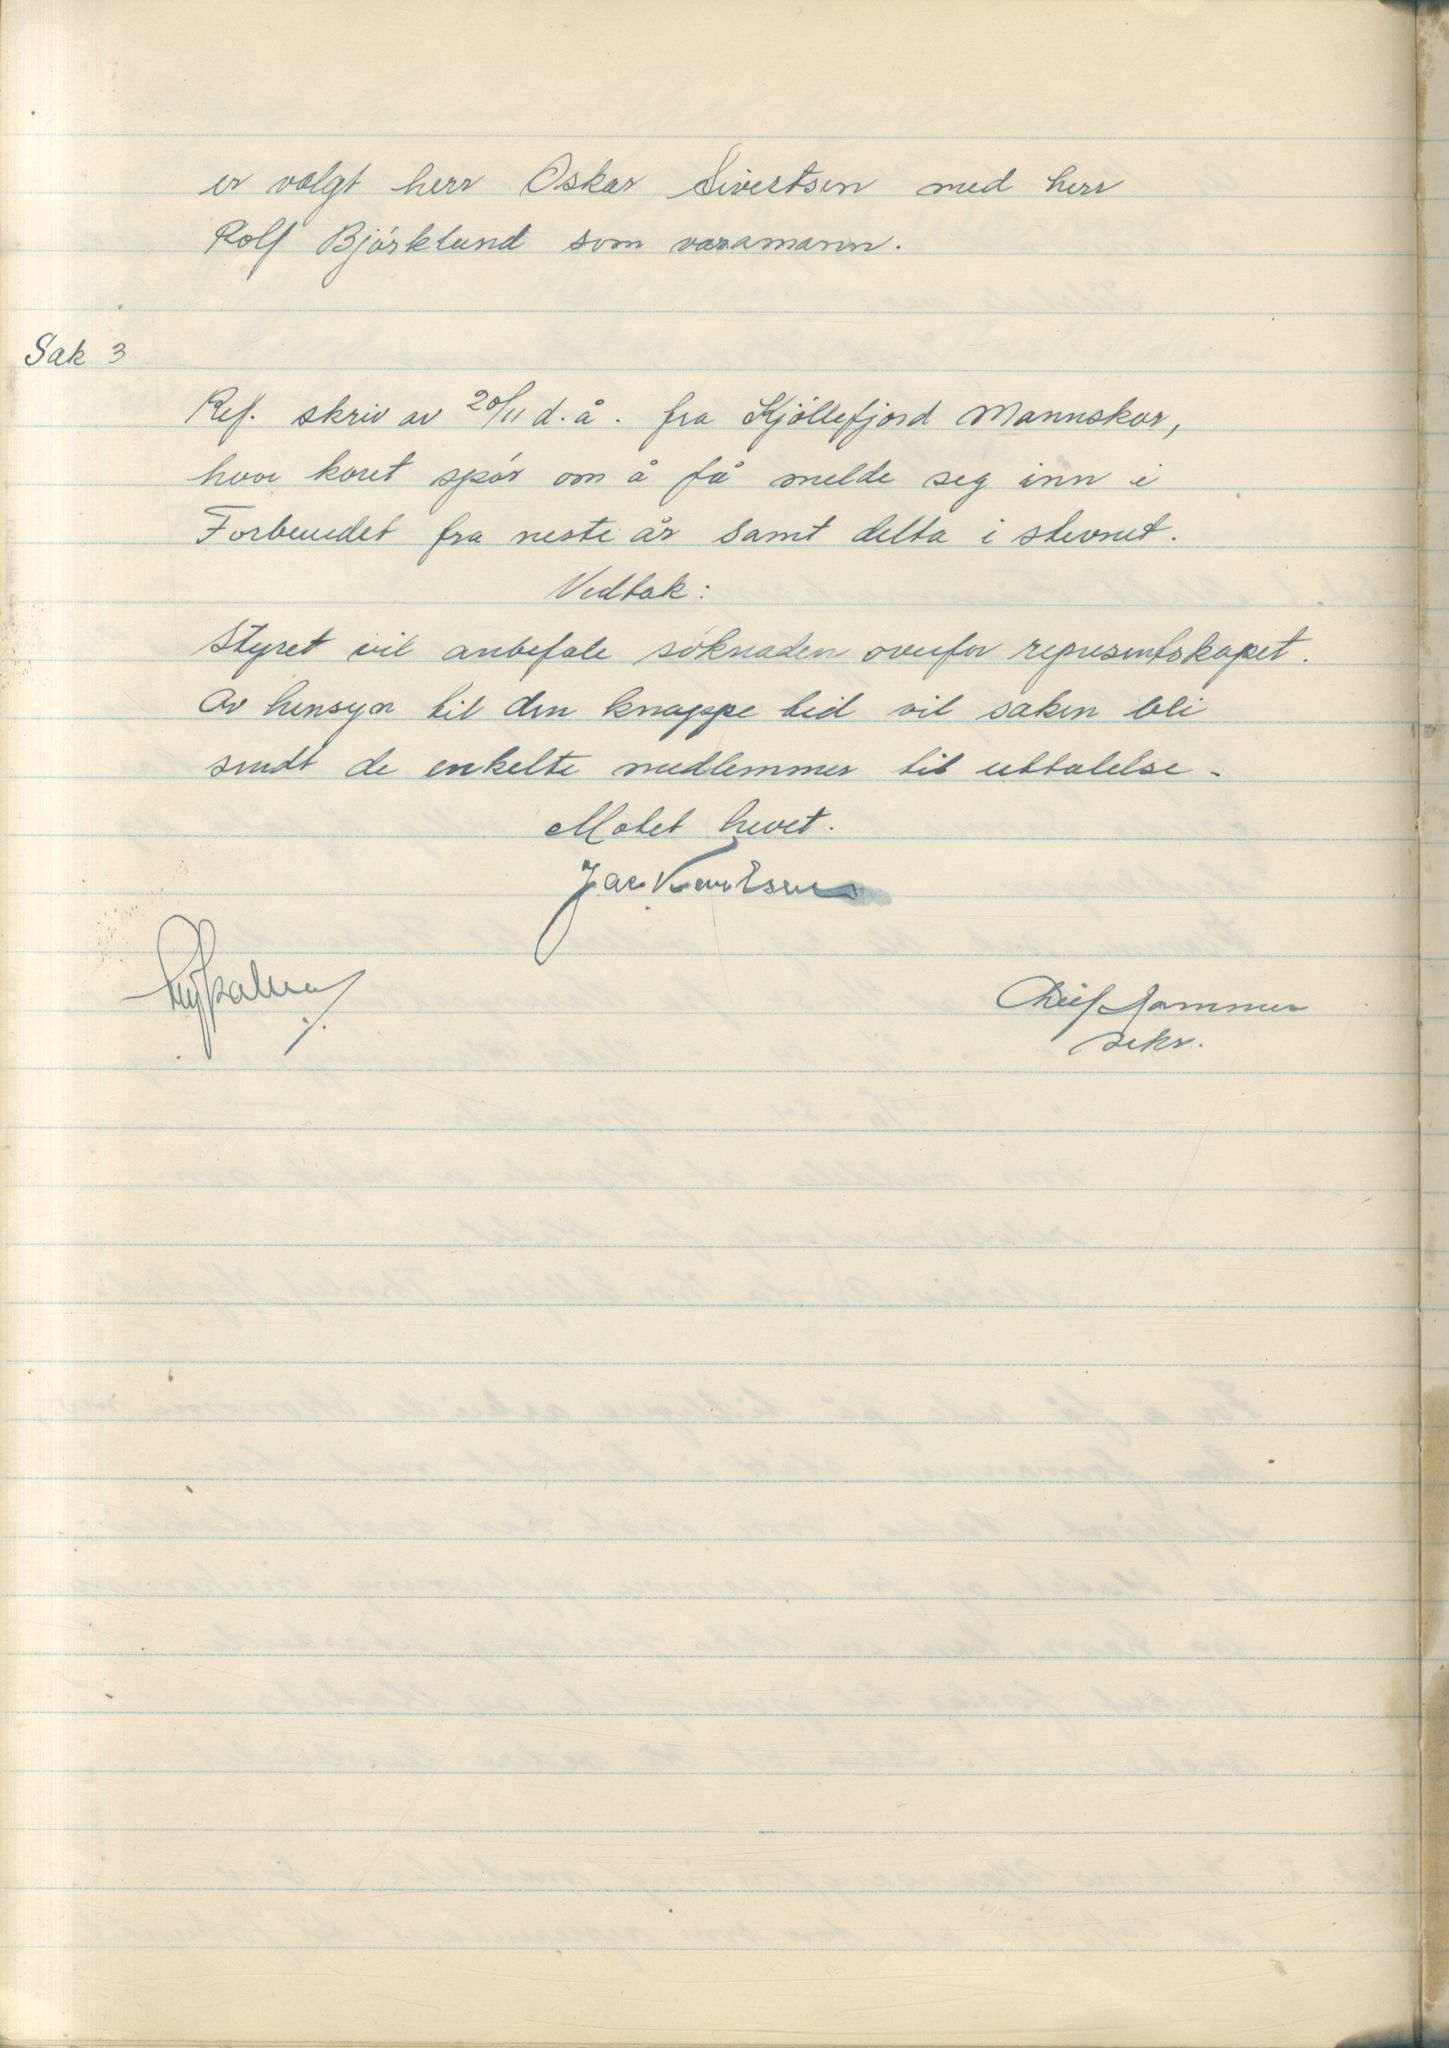 er valgt herr Oskar Sivertsen med herr
Rolf Bjørklund som varamann.
Sak 3
Ref. skriv av 20/11 d.å. fra Kjøllefjord Mannskor,
hvor koret spør om å få melde seg inn i
Forbundet fra neste år samt delta i stevnet.
Vedtak:
Styret vil anbefale søknaden overfor representskapet.
Av hensyn til den knappe tid vil saken bli
sendt de enkelte medlemmer til uttalelse.
Møtet hevet.
Leif Hammer
sekr.